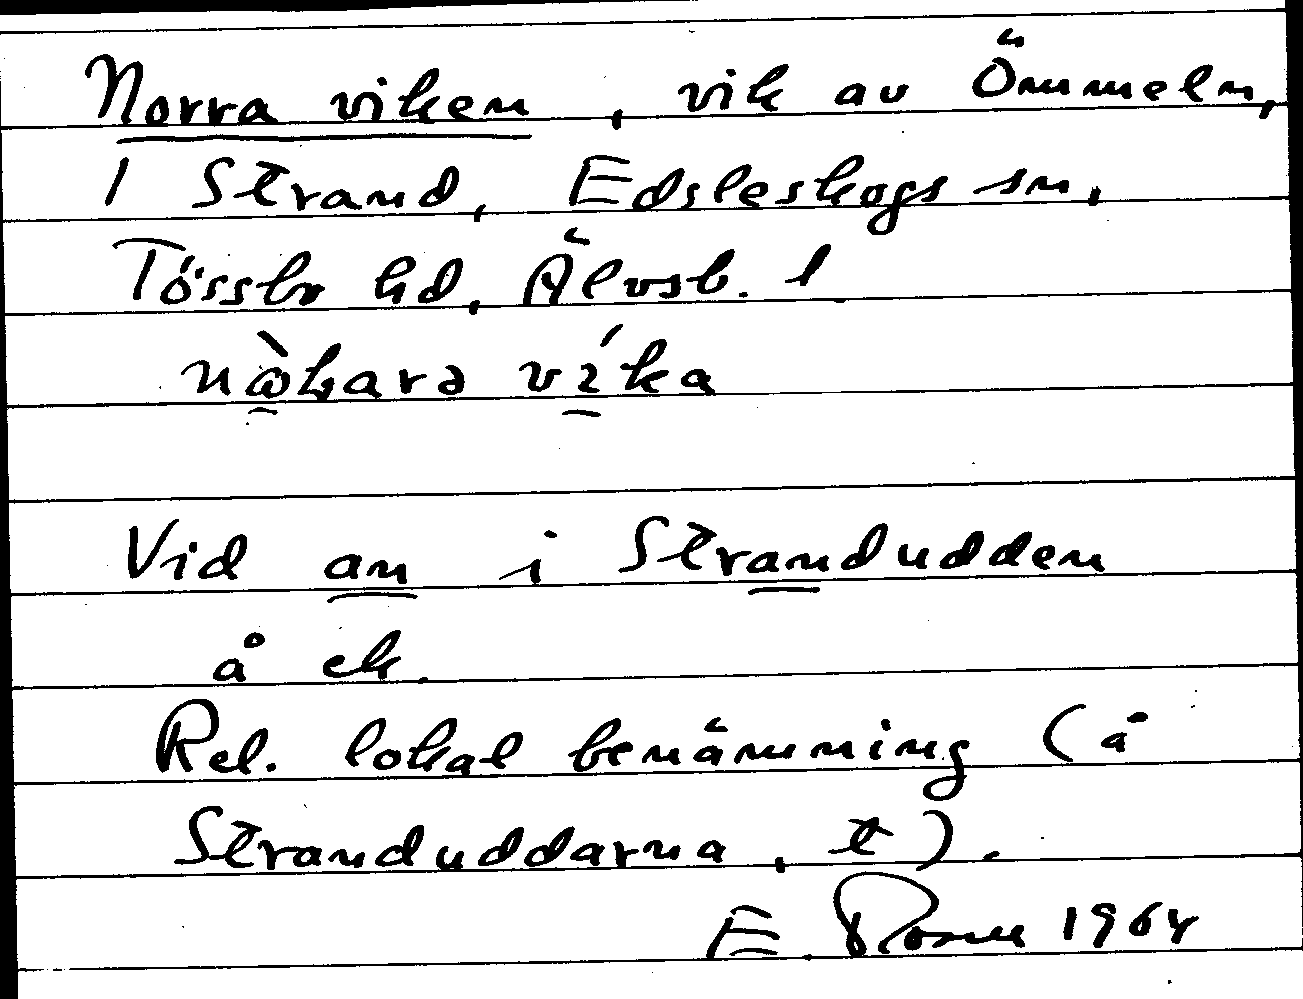 Norra viken, vik av Ömmeln,
1 Strand, Edsleskogs sn,
Tössbo hd, Älvsb. l
vika
Vid an i Strandudden
å ek.
Rel. lokal benämning (å
Stranduddarna, t).
E. 1964